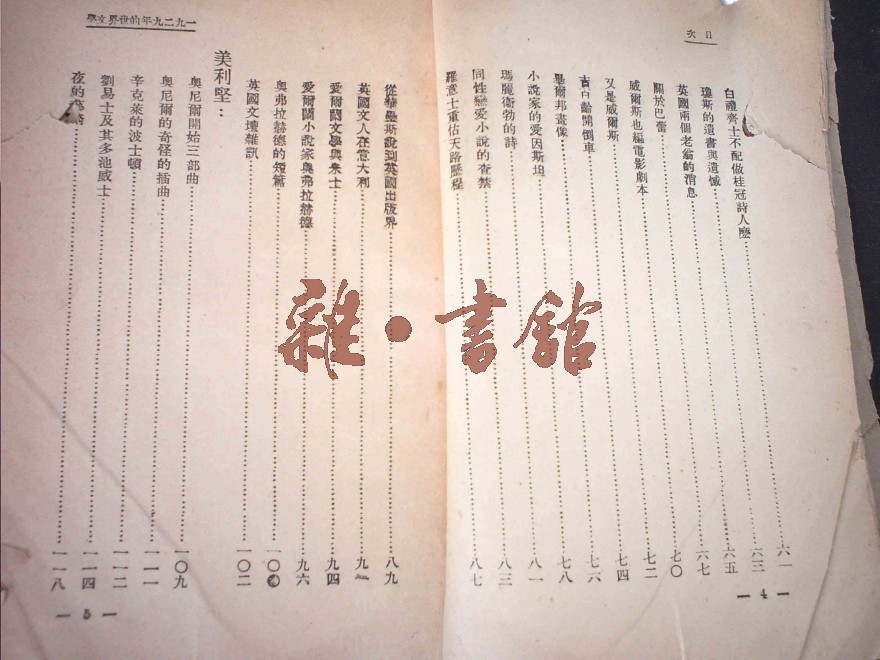 目次
白禮齊士不配做桂冠詩人麼 六一
瓊斯的遺書與遺憾 六三
英國兩個老翁的消息 六五
關於巴蕾 六七
威爾斯也編電影劇本 七〇
又是威爾斯 七二
吉卜齡開倒車 七四
畢爾邦畫像 七六
小說家的愛因斯坦 七八
瑪麗衛勃的詩 八一
同性戀愛小說的查禁 八三
羅意士重估天路歷程 八七
— 4 —
一九二九年的世界文學
從 斯說到英國出版界 八九
英國文人在意大利 九一
愛爾蘭文學與朱士 九四
愛爾蘭小說家奧弗拉赫德 九六
奧弗拉赫德的短篇 一〇〇
英國文壇雜訊 一〇二
美利堅：
奧尼爾開始三部曲 一〇九
奧尼爾的奇怪的插曲 一一一
辛克萊的波士頓 一一二
劉易士及其多池威士 一一四
夜的 一一八
— 5 —
雜·書館